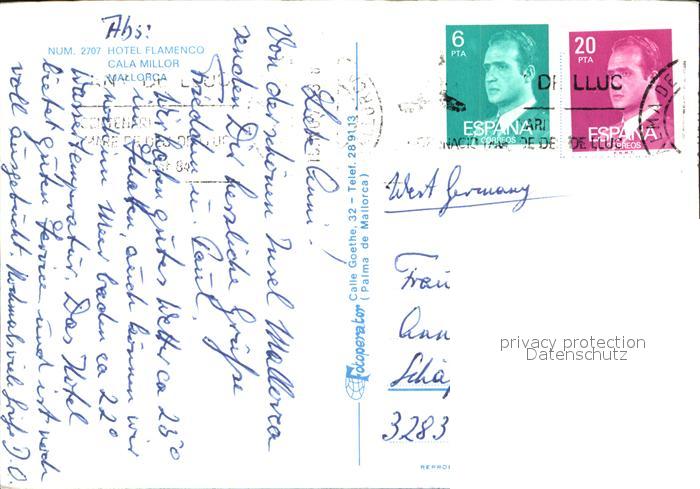 Abs:
NUM. 2707 HOTEL FLAMENCO
CALA MILLOR
MALLORCA
Liebe Anni!
Von der schönen Insel Mallorca
senden Dir herzliche Grüße
Frieda u. Paul.
Wir haben gutes Wetter ca 25°
im Schatten, auch können wir
noch im Meer baden ca 22°
Wassertemperatur. Das Hotel
bietet guten Service und ist noch
voll ausgebucht Nochmals viele Grüße D.O.
Fotoperator Calle Goethe, 32 – Telef. 28 91 13
(Palma de Mallorca)
6
PTA
ESPAÑA
CORREOS
20
PTA
ESPAÑA
CORREOS
DE LLUC
West Germany
Frau
Ann
Schä
3283
privacy protection
Datenschutz
REPROD